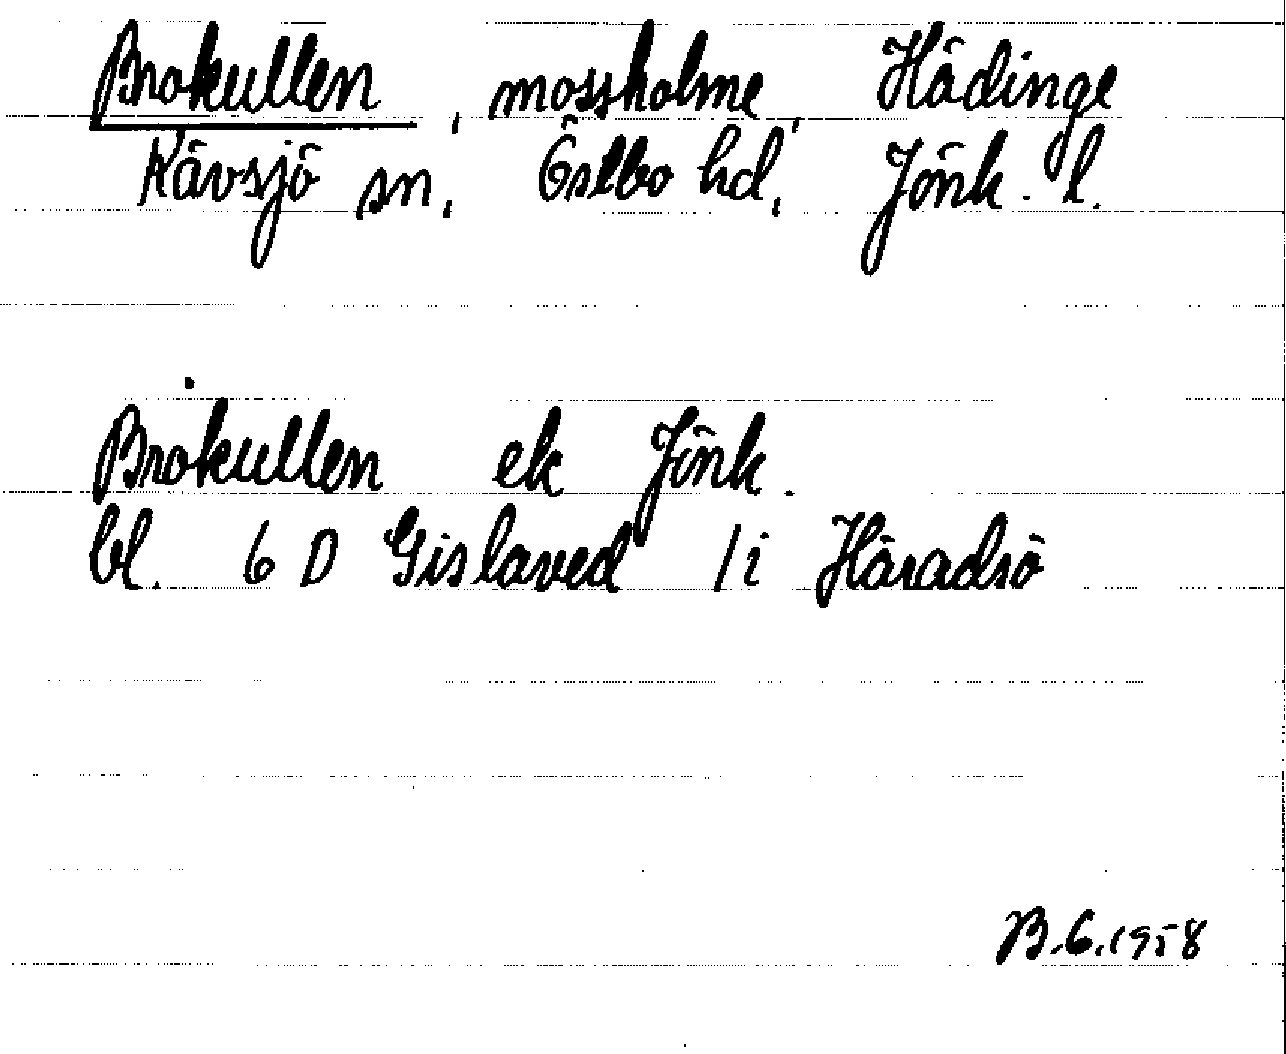 Brokullen, mossholme, Hädinge
Kävsjö sn, Östbo hd, Jönk. l.
Brokullen ek Jönk.
bl. 6 D Gislaved 1i Häradsö
B.G.1958